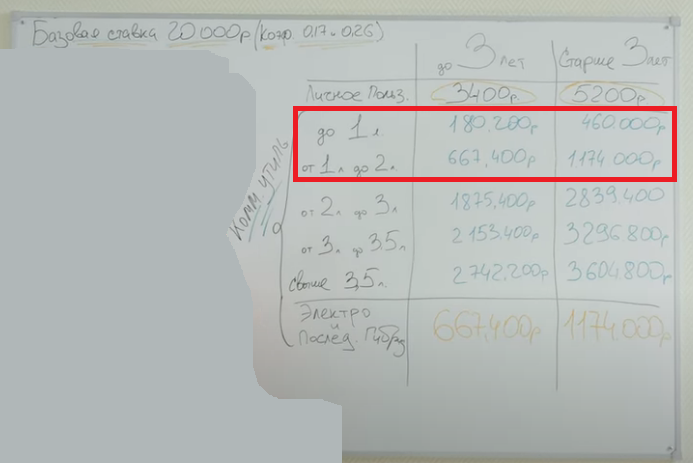 Базовая ставка 20 000р (Коэф. 0.17 и 0.26)
до 3 лет Старше 3 лет
Личное Польз. 3400р 5200р
до 1 л. 180.200р 460.000р
от 1л до 2л. 667.400р 1174 000р
от 2л до 3л 1875.400р 2839.400
от 3л до 3,5л 2 153.400р 3296 800р
свыше 3,5л. 2 742.200р 3604 800р
Комм. утиль
Электро
и 667.400р 1174.000р
Послед.